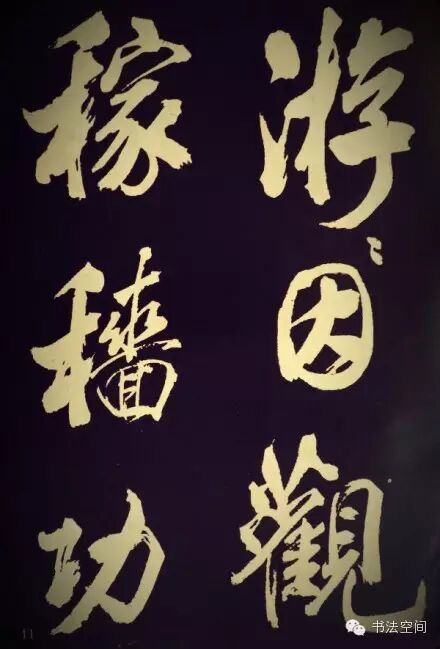 游因觀
稼穡功
11
书法空间